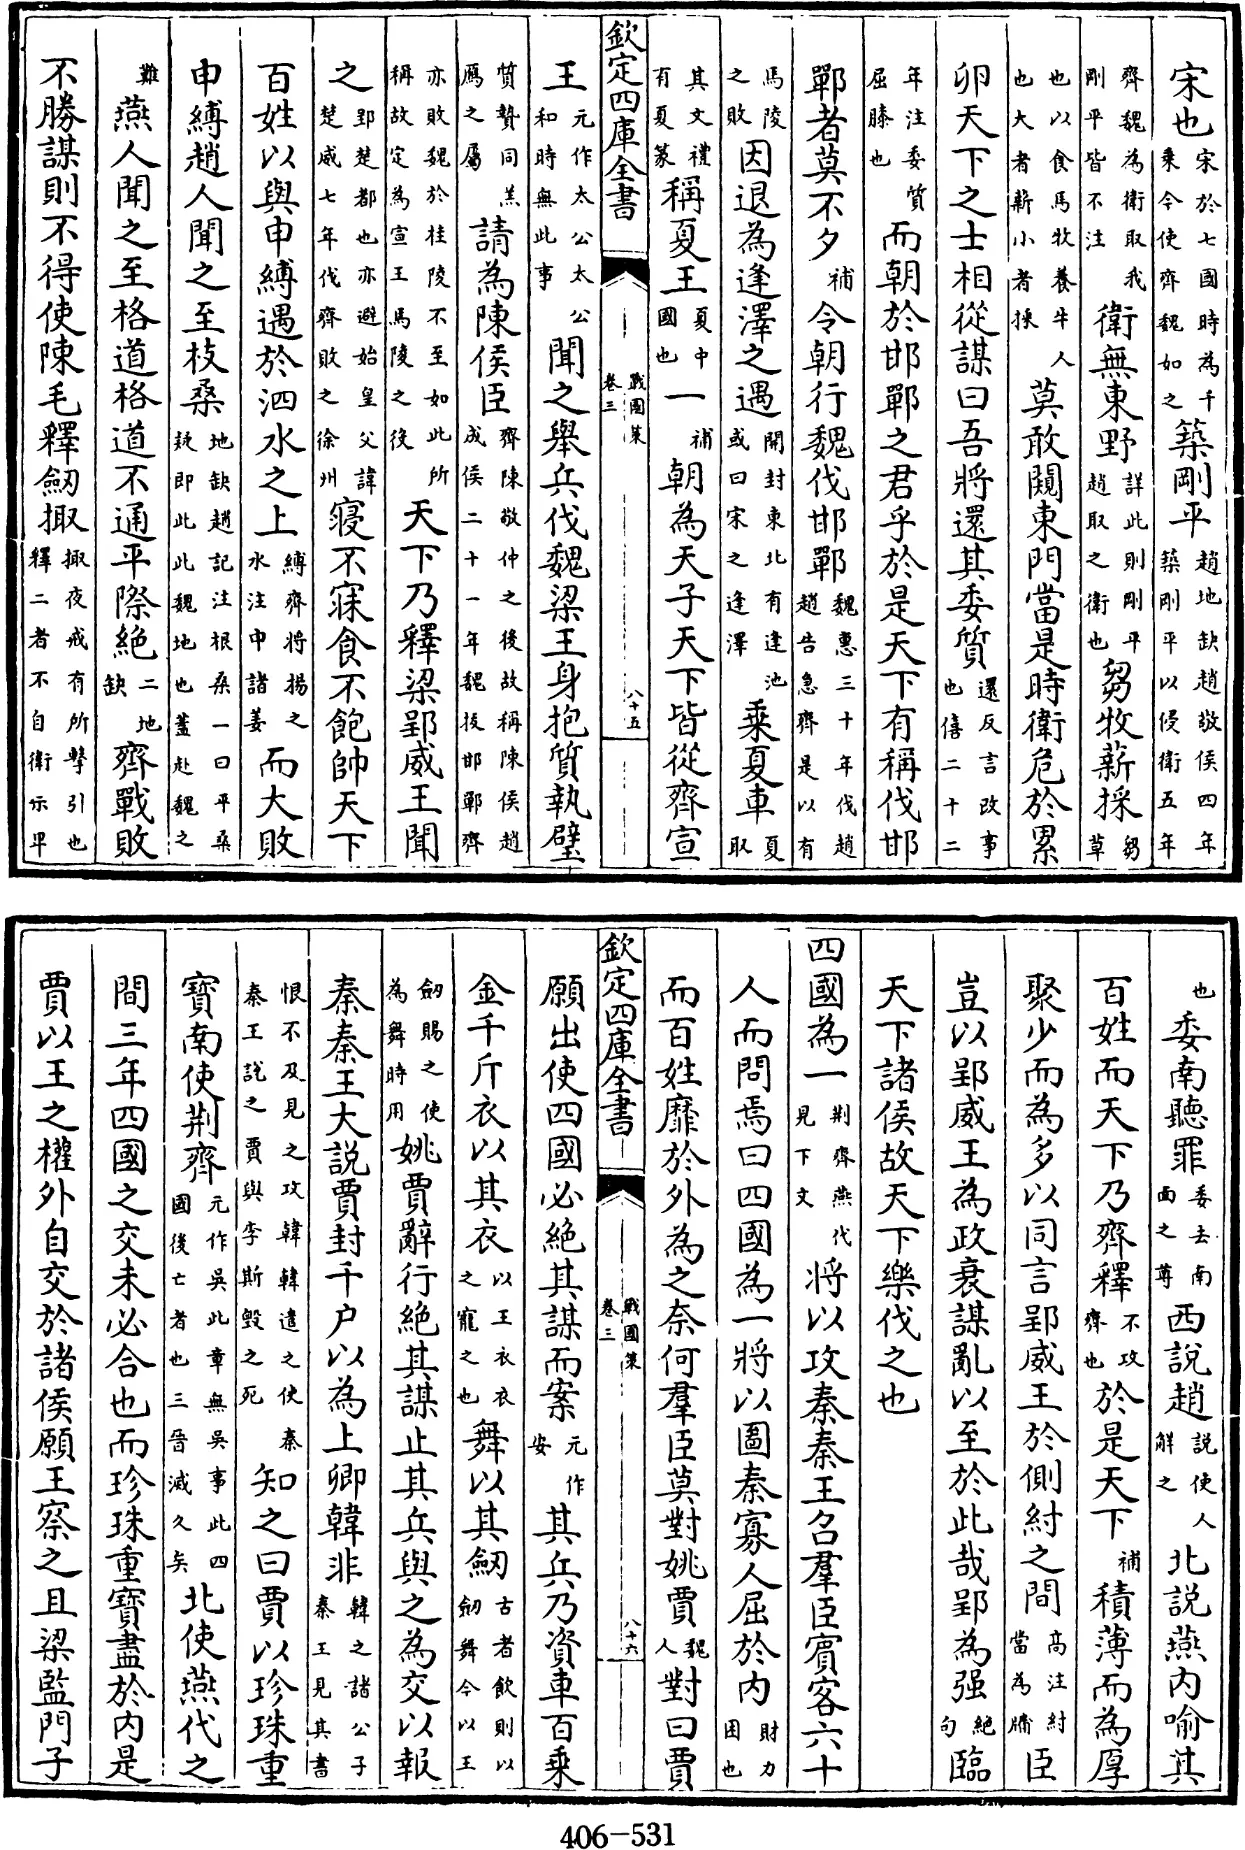 宋也宋於七國時為千乘今使齊魏如之築剛平趙地缺趙敬侯四年築剛平以侵衛五年
齊魏為衛取我剛平皆不注衛無東野詳此則剛平趙取之衛也芻牧薪採芻草
也以食馬牧養牛人也大者薪小者採莫敢闚東門當是時衛危於累
卵天下之士相從謀曰吾將還其委質還反言改事也僖二十二
年注委質屈膝也而朝於邯鄲之君乎於是天下有稱伐邯
鄲者莫不夕補令朝行魏伐邯鄲魏惠三十年伐趙趙告急齊是以有
馬陵之敗因退為逢澤之遇開封東北有逢池或曰宋之逢澤乗夏車夏取
其文禮有夏篆稱夏王夏中國也一補朝為天子天下皆從齊宣
欽定四庫全書 戰國策卷三 八十五
王元作太公太公和時無此事聞之舉兵伐魏梁王身抱質執璧
質贄同羔鴈之屬請為陳侯臣齊陳敬仲之後故稱陳侯趙成侯二十一年魏拔邯鄲齊
亦敗魏於桂陵不至如此所稱故定為宣王馬陵之役天下乃釋梁郢威王聞
之郢楚都也亦避始皇父諱楚威七年伐齊敗之徐州寢不寐食不飽帥天下
百姓以與申縛遇於泗水之上縛齊將揚之水注申諸姜而大敗
申縛趙人聞之至枝桑地缺趙記注根桑一曰平桑疑即此此魏地也蓋赴魏之
難燕人聞之至格道格道不通平際絶二地缺齊戰敗
不勝謀則不得使陳毛釋劒掫掫夜戒有所擊引也釋二者不自衛示卑
也委南聽罪委去南面之尊西說趙說使人解之北說燕內喻其
百姓而天下乃齊釋不攻齊也於是天下補積薄而為厚
聚少而為多以同言郢威王於側紂之間高注紂當為牖臣
豈以郢威王為政衰謀亂以至於此哉郢為强絶句臨
天下諸侯故天下樂伐之也
四國為一荆齊燕代見下文將以攻秦秦王召羣臣賓客六十
人而問焉曰四國為一將以圖秦寡人屈於內財力困也
而百姓靡於外為之奈何羣臣莫對姚賈魏人對曰賈
欽定四庫全書 戰國策卷三 八十六
願出使四國必絶其謀而案元作安其兵乃資車百乘
金千斤衣以其衣以王衣衣之寵之也舞以其劒古者飲則以劒舞今以王
劒賜之使為舞時用姚賈辭行絶其謀止其兵與之為交以報
秦秦王大說賈封千户以為上卿韓非韓之諸公子秦王見其書
恨不及見之攻韓韓遣之使秦秦王說之賈與李斯毀之死知之曰賈以珍珠重
寶南使荆齊元作吳此章無吳事此四國後亡者也三晉滅久矣北使燕代之
間三年四國之交未必合也而珍珠重寶盡於內是
賈以王之權外自交於諸侯願王察之且梁監門子
406-531